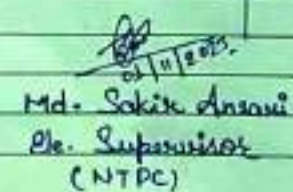 01/11/2025.
Md. Sakir Ansari
Ele. Supervisor
(NTPC)